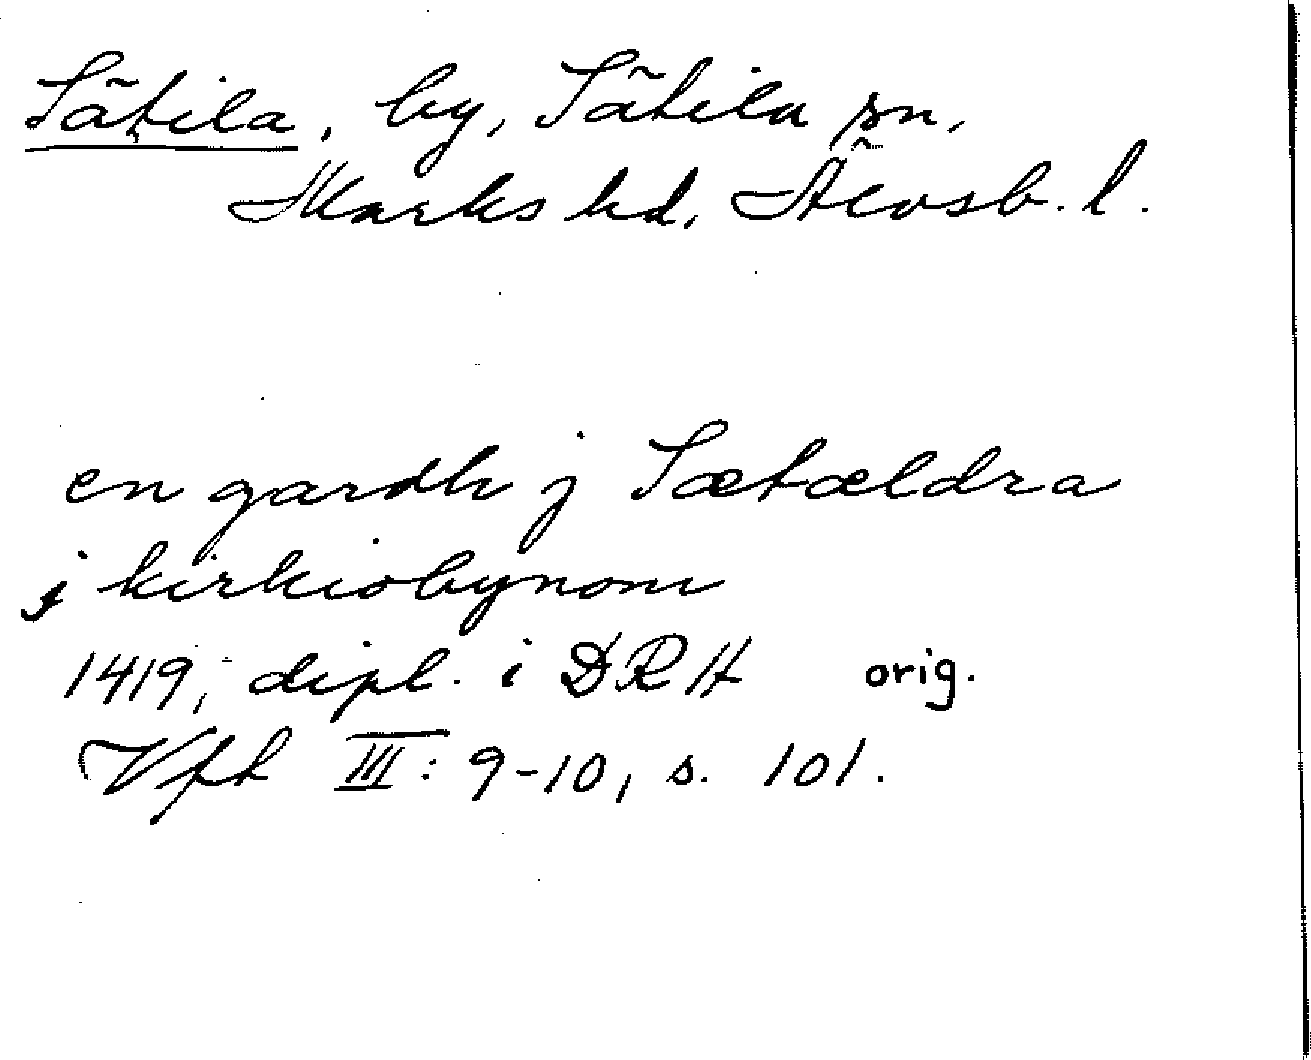 Sätila, by, Sätila sn,
Marks hd, Älvsb. l.
en gardh j Sætældra
j kirkiobynom
1419, dipl. i DRA orig.
Vft III: 9-10, s. 101.